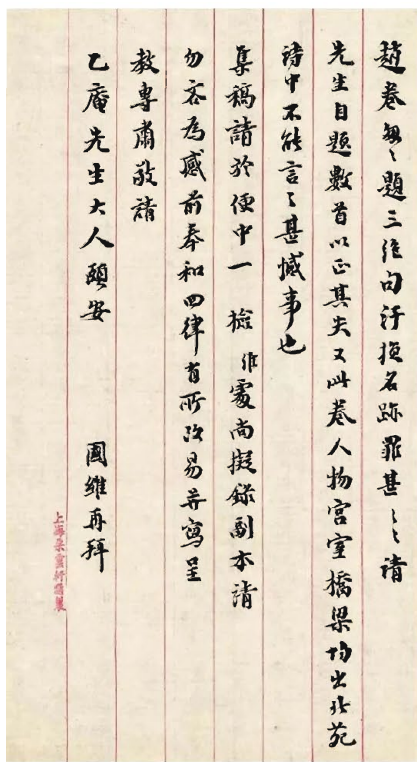 趙卷匆匆題三絕句汙損名跡罪甚〻請
先生自題數首以正其失又此卷人物宮室橋梁均出北苑
詩中不能言之甚憾事也
集稿請於便中一 檢 維處尚擬錄副本請
勿吝為感前奉和四律有所改易并寫呈
教專肅敬請
乙庵先生大人頤安
國維再拜
上海朵雲軒